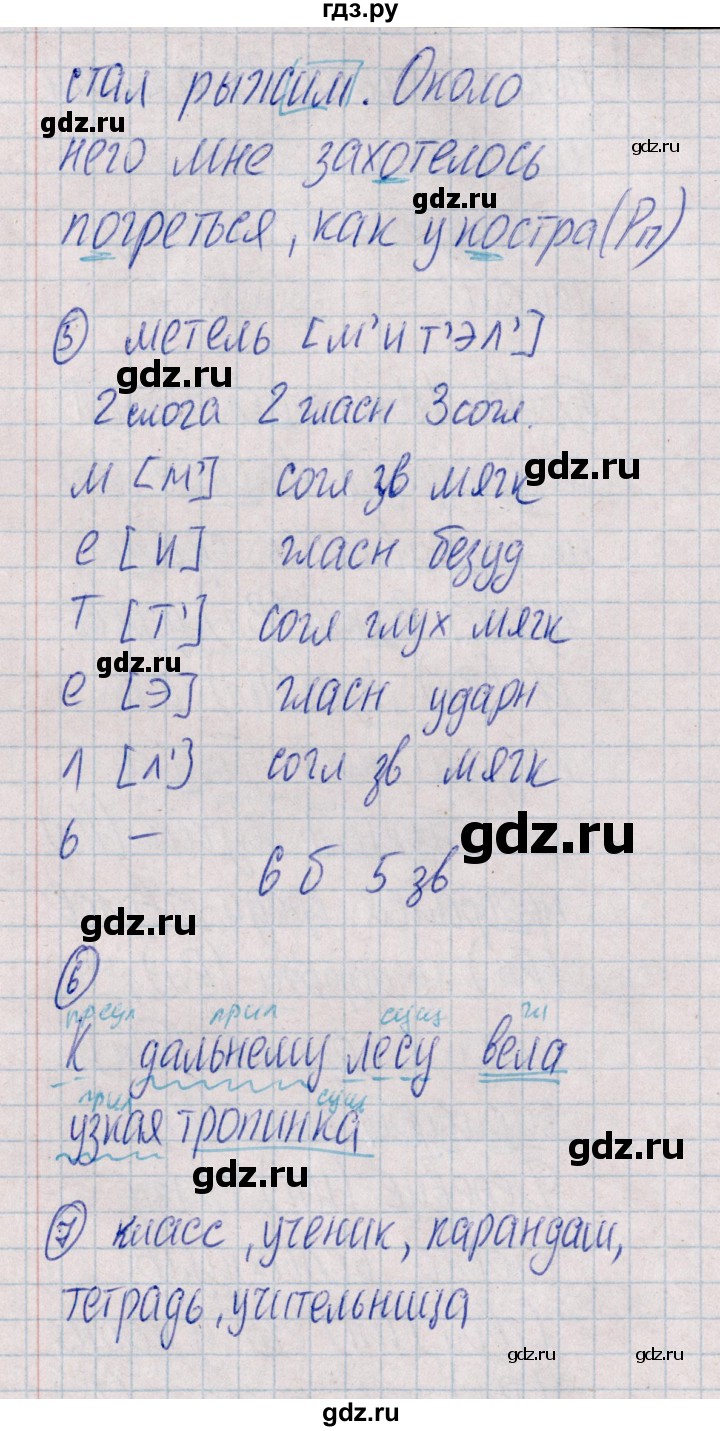 гдз.ру
стал рыжим. Около
gdz.ru
gdz.ru
него мне захотелось
gdz.ru
погреться, как у костра (Рп)
5 метель [м'ит'эл']
gdz.ru
2 слога 2 гласн 3 согл.
gdz.ru
м [м'] согл зв мягк
е [и] гласн безуд
т [т'] согл глух мягк
gdz.ru
е [э] гласн ударн
л [л'] согл зв мягк
ь –
gdz.ru
6 б 5 зв
gdz.ru
6
предл прил сущ гл
К дальнему лесу вела
прил сущ
узкая тропинка
gdz.ru
gdz.ru
7 класс, ученик, карандаш,
тетрадь, учительница
gdz.ru
gdz.ru
gdz.ru